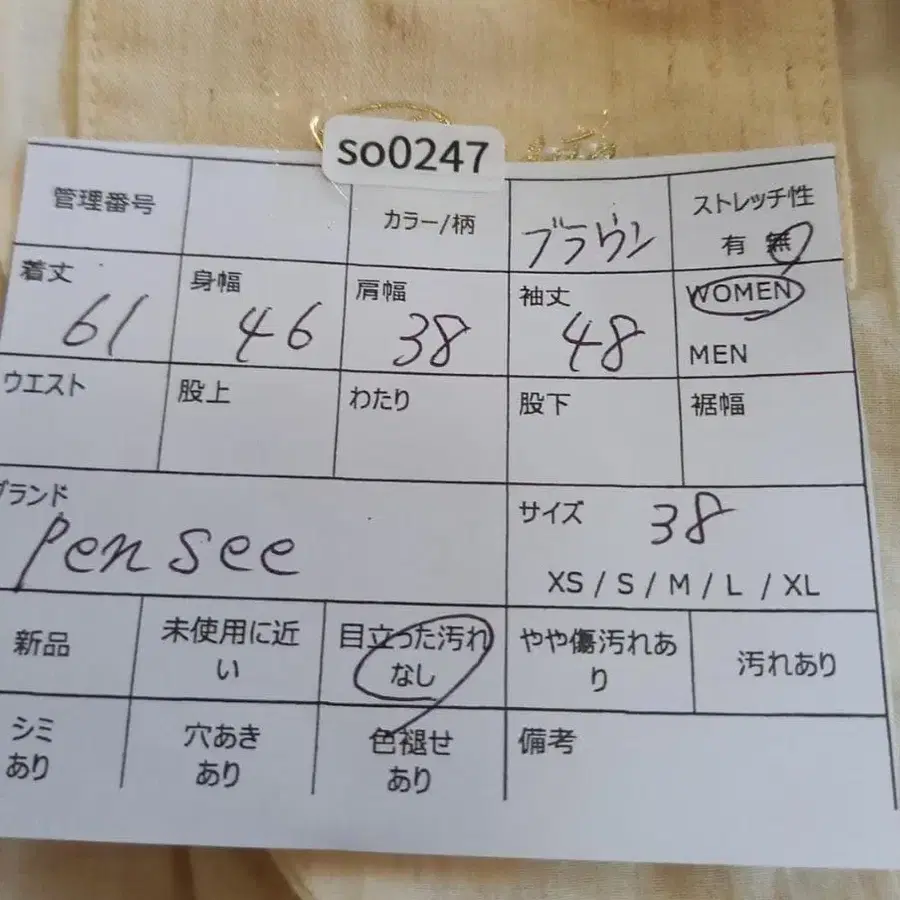 so0247
管理番号
カラー/柄
ブラウン
ストレッチ性
有 無
着丈
61
身幅
46
肩幅
38
袖丈
48
WOMEN
MEN
ウエスト
股上
わたり
股下
裾幅
ブランド
pensee
サイズ
38
XS / S / M / L / XL
新品
未使用に近
い
目立った汚れ
なし
やや傷汚れあ
り
汚れあり
シミ
あり
穴あき
あり
色褪せ
あり
備考